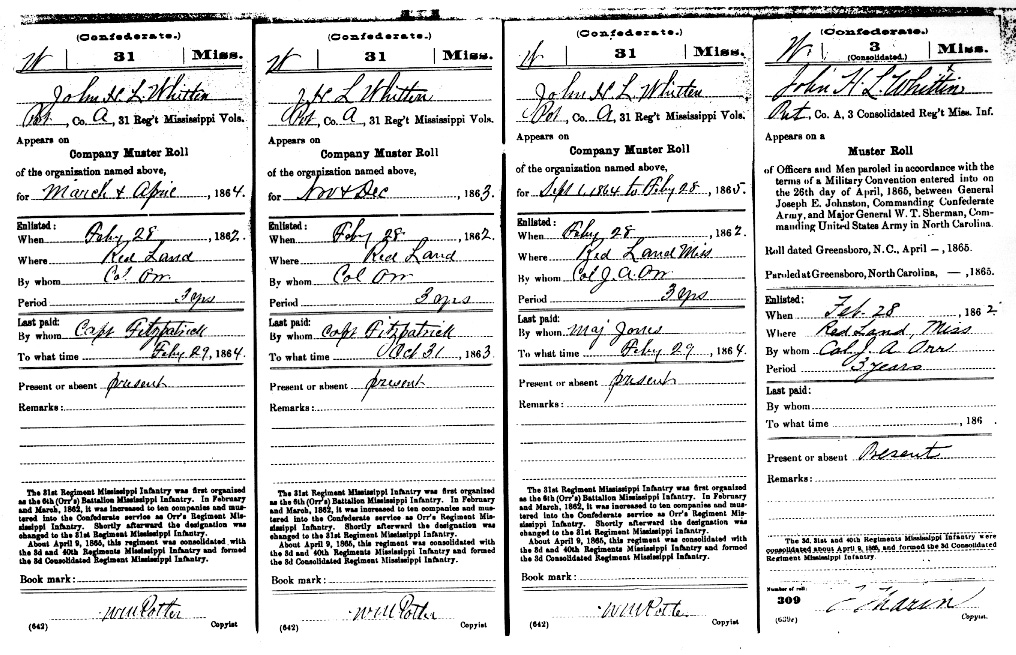 (Confederate.)
W | 31 | Miss.
John H. L. Whitten
Pvt, Co. A, 31 Reg't Mississippi Vols.
Appears on
Company Muster Roll
of the organization named above,
for March & April, 1864.
Enlisted:
When Feby 28, 1862.
Where Red Land
By whom Col. Orr
Period 3 yrs
Last paid:
By whom Capt Fitzpatrick
To what time Feby 29, 1864.
Present or absent present
Remarks:
The 31st Regiment Mississippi Infantry was first organized
as the 6th (Orr's) Battalion Mississippi Infantry. In February
and March, 1862, it was increased to ten companies and mus-
tered into the Confederate service as Orr's Regiment Mis-
sissippi Infantry. Shortly afterward the designation was
changed to the 31st Regiment Mississippi Infantry.
About April 9, 1865, this regiment was consolidated with
the 3d and 40th Regiments Mississippi Infantry and formed
the 3d Consolidated Regiment Mississippi Infantry.
Book mark:
Wm Potter
(642) Copyist
(Confederate.)
W | 31 | Miss.
J H L Whitten
Pvt, Co. A, 31 Reg't Mississippi Vols.
Appears on
Company Muster Roll
of the organization named above,
for Nov & Dec, 1863.
Enlisted:
When Feby 28, 1862.
Where Red Land
By whom Col Orr
Period 3 yrs
Last paid:
By whom Capt Fitzpatrick
To what time Oct 31, 1863.
Present or absent present
Remarks:
The 31st Regiment Mississippi Infantry was first organized
as the 6th (Orr's) Battalion Mississippi Infantry. In February
and March, 1862, it was increased to ten companies and mus-
tered into the Confederate service as Orr's Regiment Mis-
sissippi Infantry. Shortly afterward the designation was
changed to the 31st Regiment Mississippi Infantry.
About April 9, 1865, this regiment was consolidated with
the 3d and 40th Regiments Mississippi Infantry and formed
the 3d Consolidated Regiment Mississippi Infantry.
Book mark:
Wm Potter
(642) Copyist
(Confederate.)
W | 31 | Miss.
John H. L. Whitten
Pvt, Co. A, 31 Reg't Mississippi Vols.
Appears on
Company Muster Roll
of the organization named above,
for Sept 1, 1864 to Feby 28, 1865.
Enlisted:
When Feby 28, 1862.
Where Red Land Miss
By whom Col J. A. Orr
Period 3 yrs
Last paid:
By whom Maj Jones
To what time Feby 29, 1864.
Present or absent present
Remarks:
The 31st Regiment Mississippi Infantry was first organized
as the 6th (Orr's) Battalion Mississippi Infantry. In February
and March, 1862, it was increased to ten companies and mus-
tered into the Confederate service as Orr's Regiment Mis-
sissippi Infantry. Shortly afterward the designation was
changed to the 31st Regiment Mississippi Infantry.
About April 9, 1865, this regiment was consolidated with
the 3d and 40th Regiments Mississippi Infantry and formed
the 3d Consolidated Regiment Mississippi Infantry.
Book mark:
Wm Potter
(642) Copyist
(Confederate.)
W | 3 | Miss.
(Consolidated.)
John H. L. Whitten
Pvt, Co. A, 3 Consolidated Reg't Miss. Inf.
Appears on a
Muster Roll
of Officers and Men paroled in accordance with the
terms of a Military Convention entered into on
the 26th day of April, 1865, between General
Joseph E. Johnston, Commanding Confederate
Army, and Major General W. T. Sherman, Com-
manding United States Army in North Carolina.
Roll dated Greensboro, N. C., April –, 1865.
Paroled at Greensboro, North Carolina, –, 1865.
Enlisted:
When Feb. 28, 1862
Where Red Land, Miss
By whom Col. J. A Orr
Period 3 years
Last paid:
By whom
To what time, 186 .
Present or absent Present
Remarks:
The 3d, 31st and 40th Regiments Mississippi Infantry were
consolidated about April 9, 1865, and formed the 3d Consolidated
Regiment Mississippi Infantry.
Number of roll:
309
Copyist.